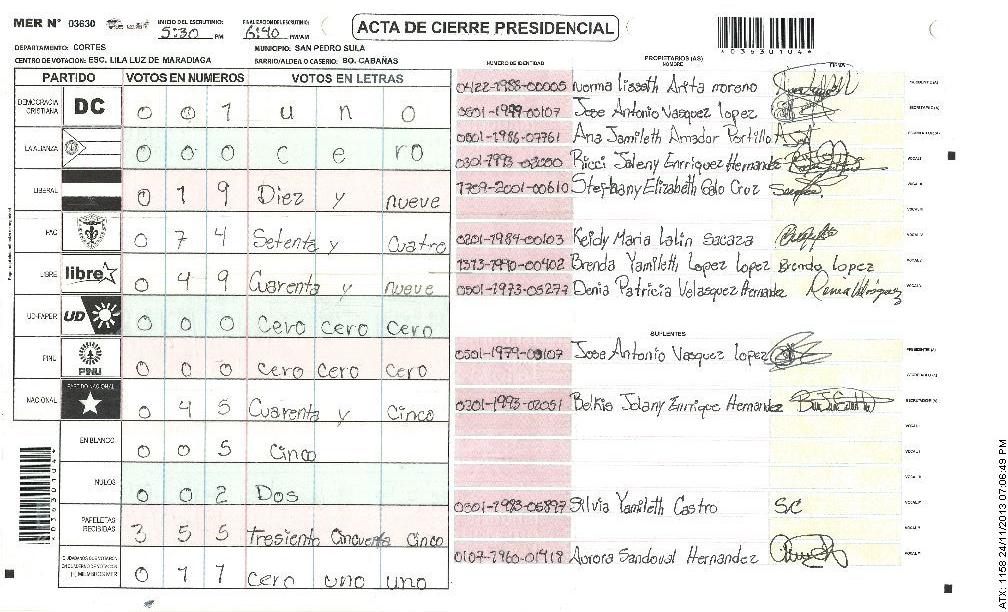 MER N° 03630
INICIO DEL ESCRUTINIO: 5:30 PM
FINALIZACION DEL ESCRUTINIO: 6:40 PM/AM
ACTA DE CIERRE PRESIDENCIAL
*03630104*
DEPARTAMENTO: CORTES
MUNICIPIO: SAN PEDRO SULA
CENTRO DE VOTACION: ESC. LILA LUZ DE MARADIAGA
BARRIO/ALDEA O CASERIO: BO. CABAÑAS
PARTIDO VOTOS EN NUMEROS VOTOS EN LETRAS
DEMOCRACIA CRISTIANA DC 0 0 1 uno
LA ALIANZA 0 0 0 cero
LIBERAL 0 1 9 Diez y nueve
PAC 0 7 4 Setenta y Cuatro
LIBRE libre 0 4 9 Cuarenta y nueve
UD-FAPER UD 0 0 0 Cero cero cero
PINU PINU 0 0 0 cero cero cero
NACIONAL PARTIDO NACIONAL 0 4 5 Cuarenta y Cinco
EN BLANCO 0 0 5 Cinco
NULOS 0 0 2 Dos
PAPELETAS RECIBIDAS 3 5 5 tresiento Cincuenta Cinco
CIUDADANOS QUE VOTARON EN CUADERNO DE VOTACION (+) MIEMBROS MER 0 1 1 cero uno uno
NUMERO DE IDENTIDAD
PROPIETARIOS (AS)
NOMBRE
FIRMA
0422-1988-00005 Norma Lisseth Arita moreno
0501-1979-00107 Jose Antonio Vasquez lopez
0501-1986-07761 Ana Jamileth Amador Portillo
Ricci Joleny Enrriquez Hernandez
1709-2001-00610 Stephany Elizabeth Galo Cruz
0201-1984-00103 Keidy Maria Lalin Sacaza
Brenda Yamileth Lopez Lopez Brenda Lopez
0501-1973-05277 Denia Patricia Velasquez Hernandez
SUPLENTES
Jose Antonio Vasquez lopez
0301-1993-02051 Belkis Jolany Enrrique Hernandez
Silvia Yamileth Castro SC
0107-1960-01418 Aurora Sandoval Hernandez
ATX: 1158 24/11/2013 07:06:49 PM